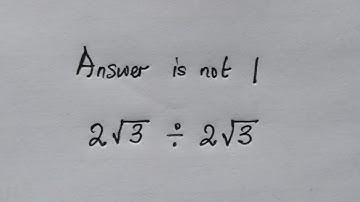 Answer is not 1
2√3 ÷ 2√3